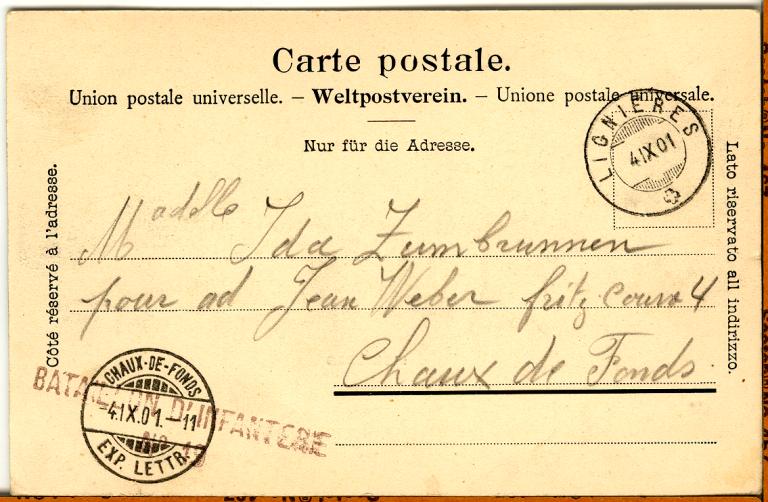 Carte postale.
Union postale universelle. – Weltpostverein. – Unione postale universale.
Nur für die Adresse.
LIGNIERES
4 IX 01
Côté réservé à l'adresse.
Lato riservato all indirizzo.
Madelle Ida Zumbrunnen
pour ad Jean Weber fritz courv 4
Chaux de Fonds
CHAUX-DE-FONDS
4.IX.01.–11
EXP. LETTR.
BATAILLON D'INFANTERIE